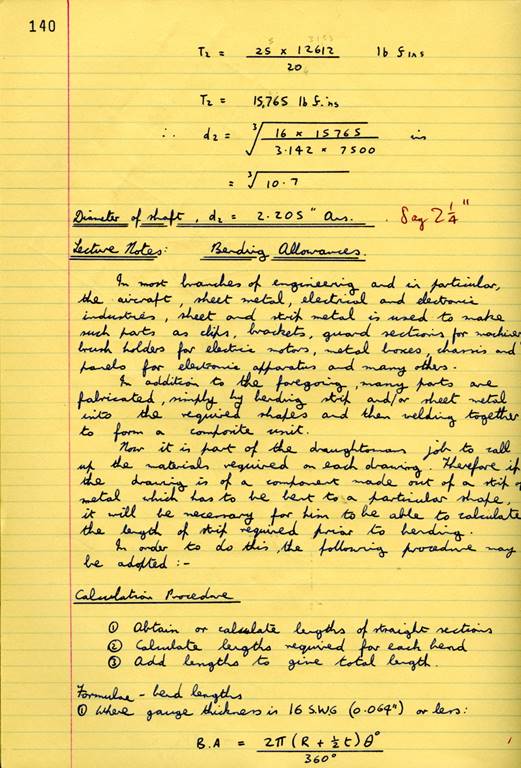 140
T₂ = 25 × 12612 / 20 lb f ins
T₂ = 15,765 lb f. ins
∴ d₂ = ∛(16 × 15765 / 3.142 × 7500) ins
= ∛10.7
Diameter of shaft, d₂ = 2.205" Ans. Say 2 1/4"
Lecture Notes: Bending Allowances.
In most branches of engineering and in particular,
the aircraft, sheet metal, electrical and electronic
industries, sheet and strip metal is used to make
such parts as clips, brackets, guard sections for machines
brush holders for electric motors, metal boxes, chassis and
panels for electronic apparatus and many others.
In addition to the foregoing, many parts are
fabricated, simply by bending strip and/or sheet metal
into the required shapes and then welding together
to form a composite unit.
Now it is part of the draughtsmans job to call
up the materials required on each drawing. Therefore if
the drawing is of a component made out of a strip of
metal which has to be bent to a particular shape,
it will be necessary for him to be able to calculate
the length of strip required prior to bending.
In order to do this, the following procedure may
be adopted :-
Calculation Procedure
① Obtain or calculate lengths of straight sections
② Calculate lengths required for each bend
③ Add lengths to give total length.
Formulae - bend lengths
① Where gauge thickness is 16 S.W.G (0.064") or less:
B.A = 2π (R + ½t) θ° / 360°